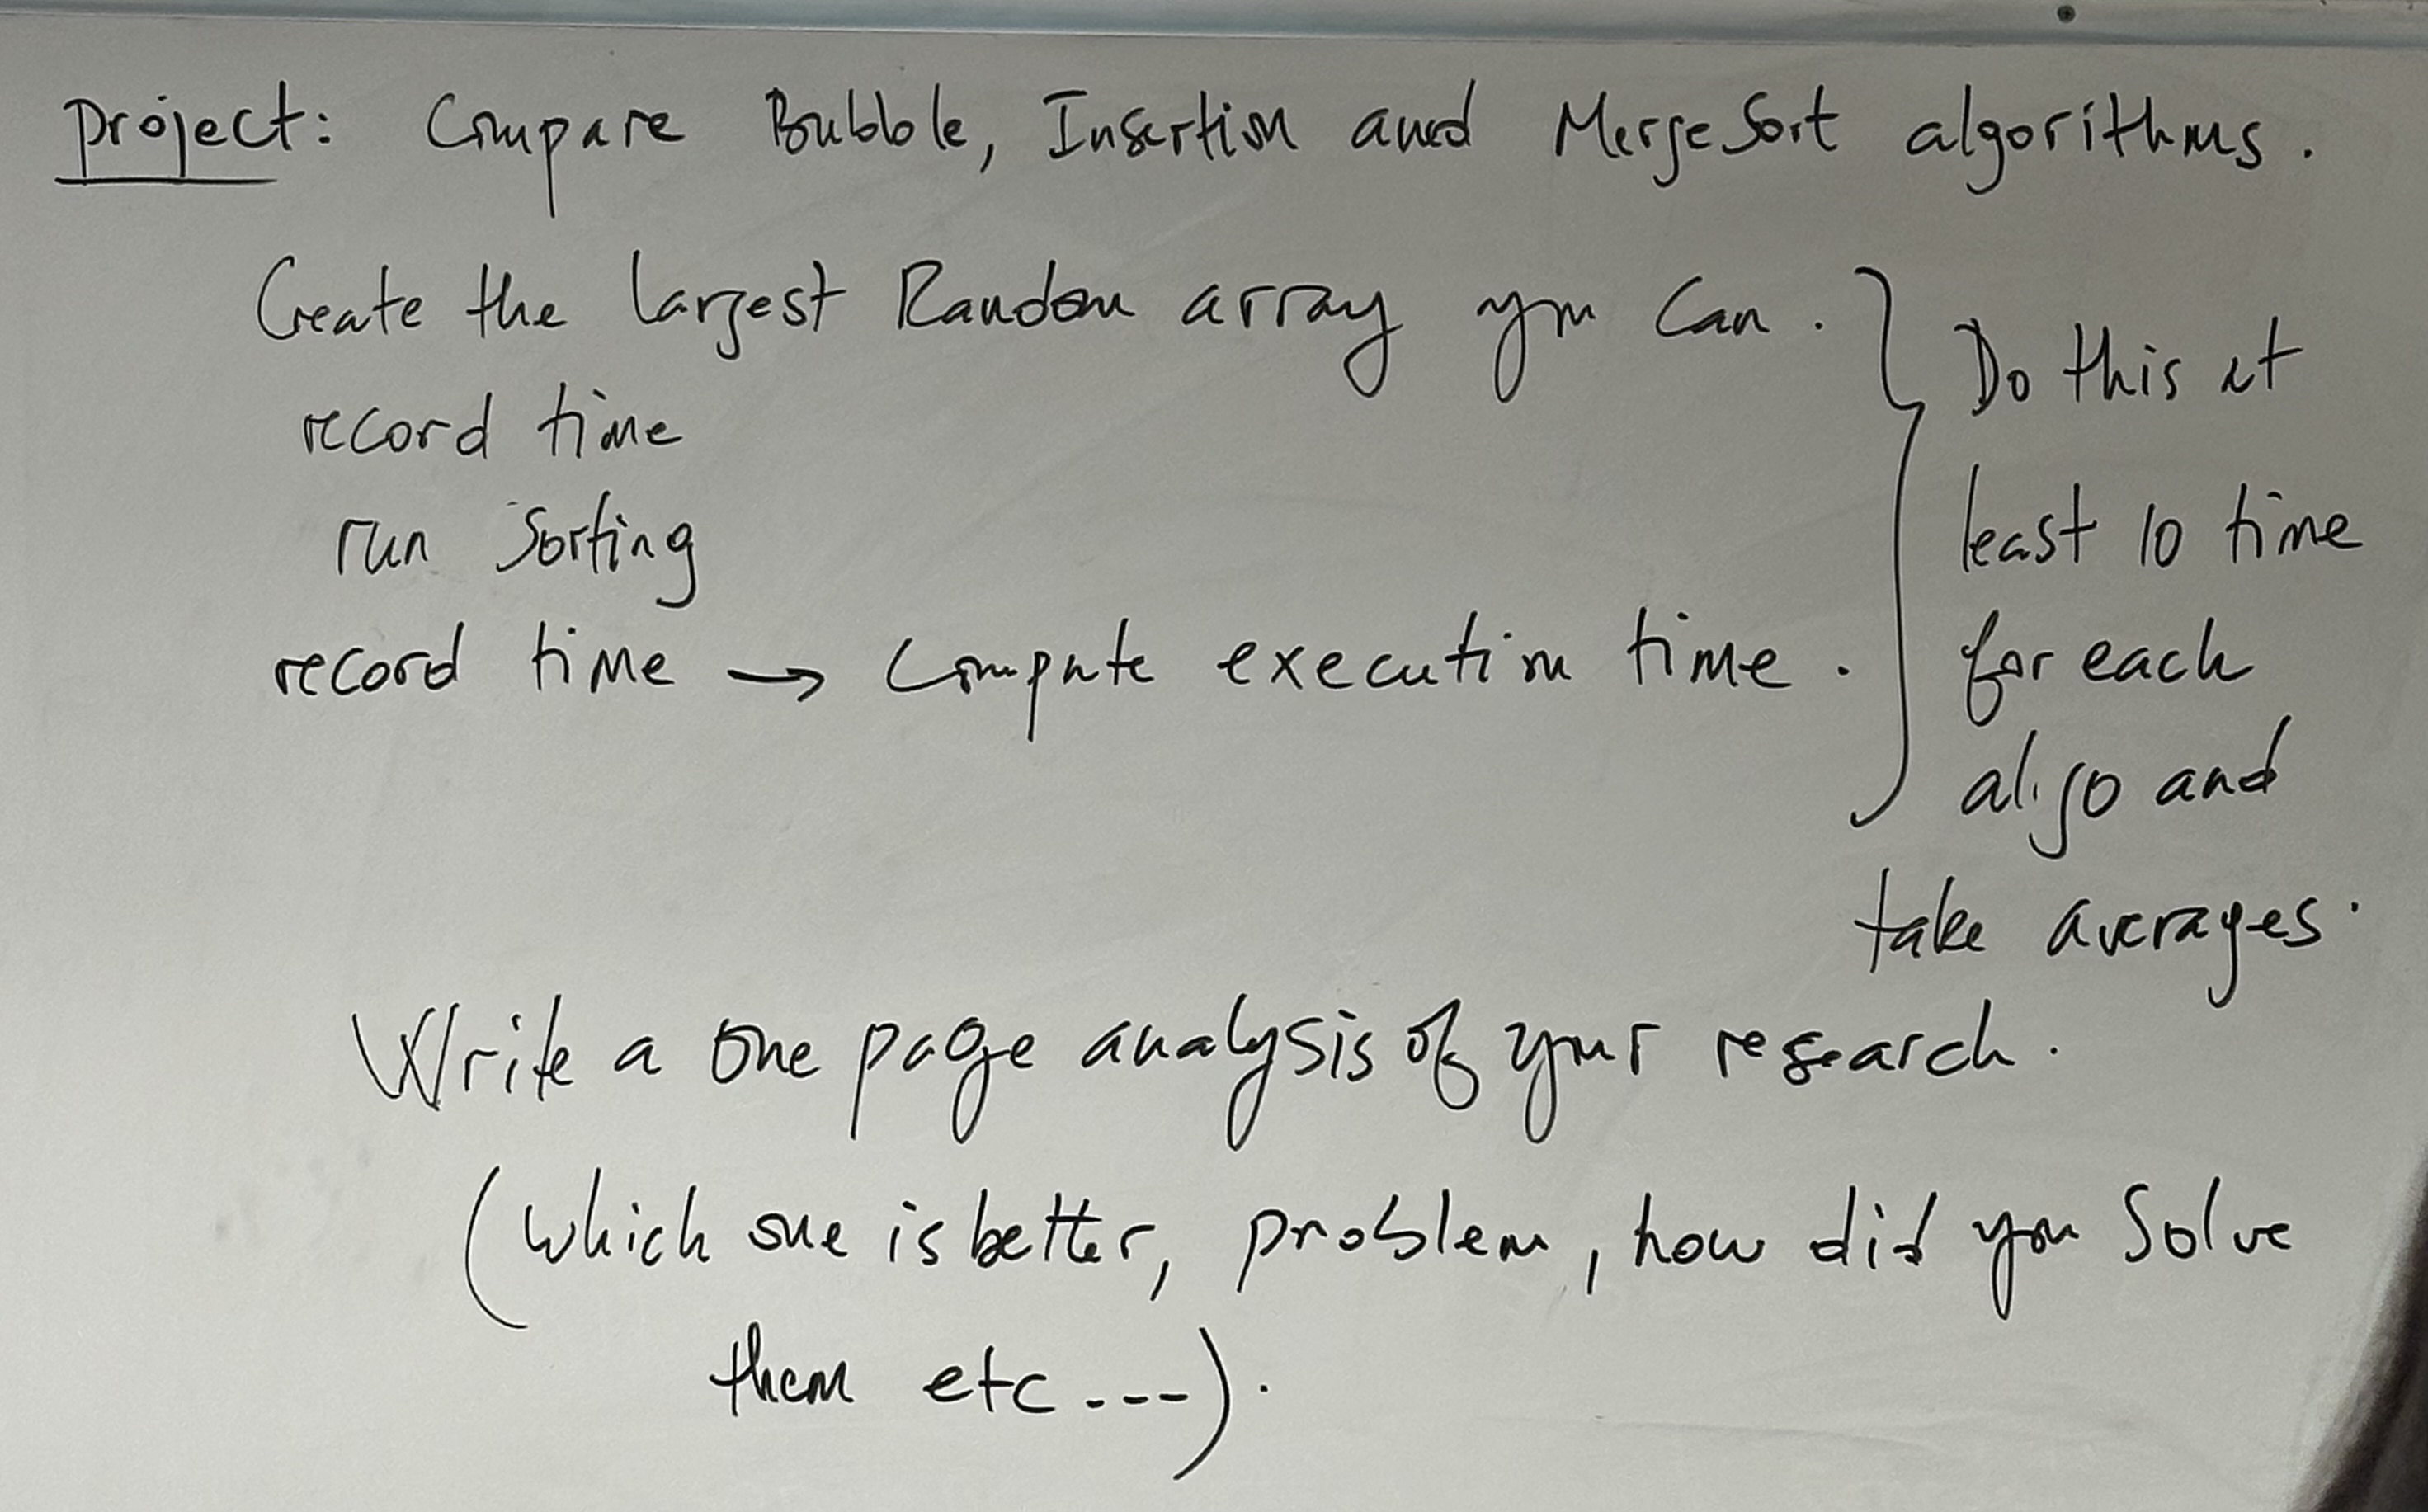 Project: Compare Bubble, Insertion and MergeSort algorithms.
Create the largest Random array you can.
record time
run sorting
record time → Compute execution time.
Do this at
least 10 time
for each
algo and
take averages.
Write a one page analysis of your research.
(which one is better, problem, how did you Solve
them etc ---).